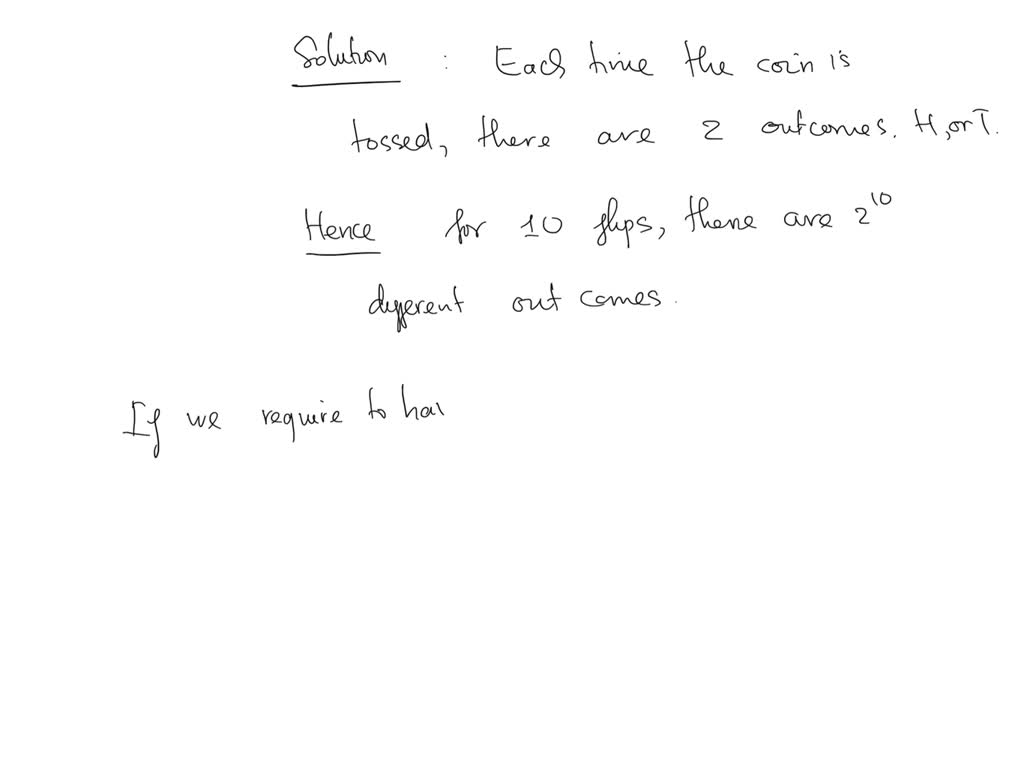 Solution : Each time the coin is
tossed, there are 2 outcomes. H, or T.
Hence for 10 flips, there are 2^10
different out comes.
If we require to hav